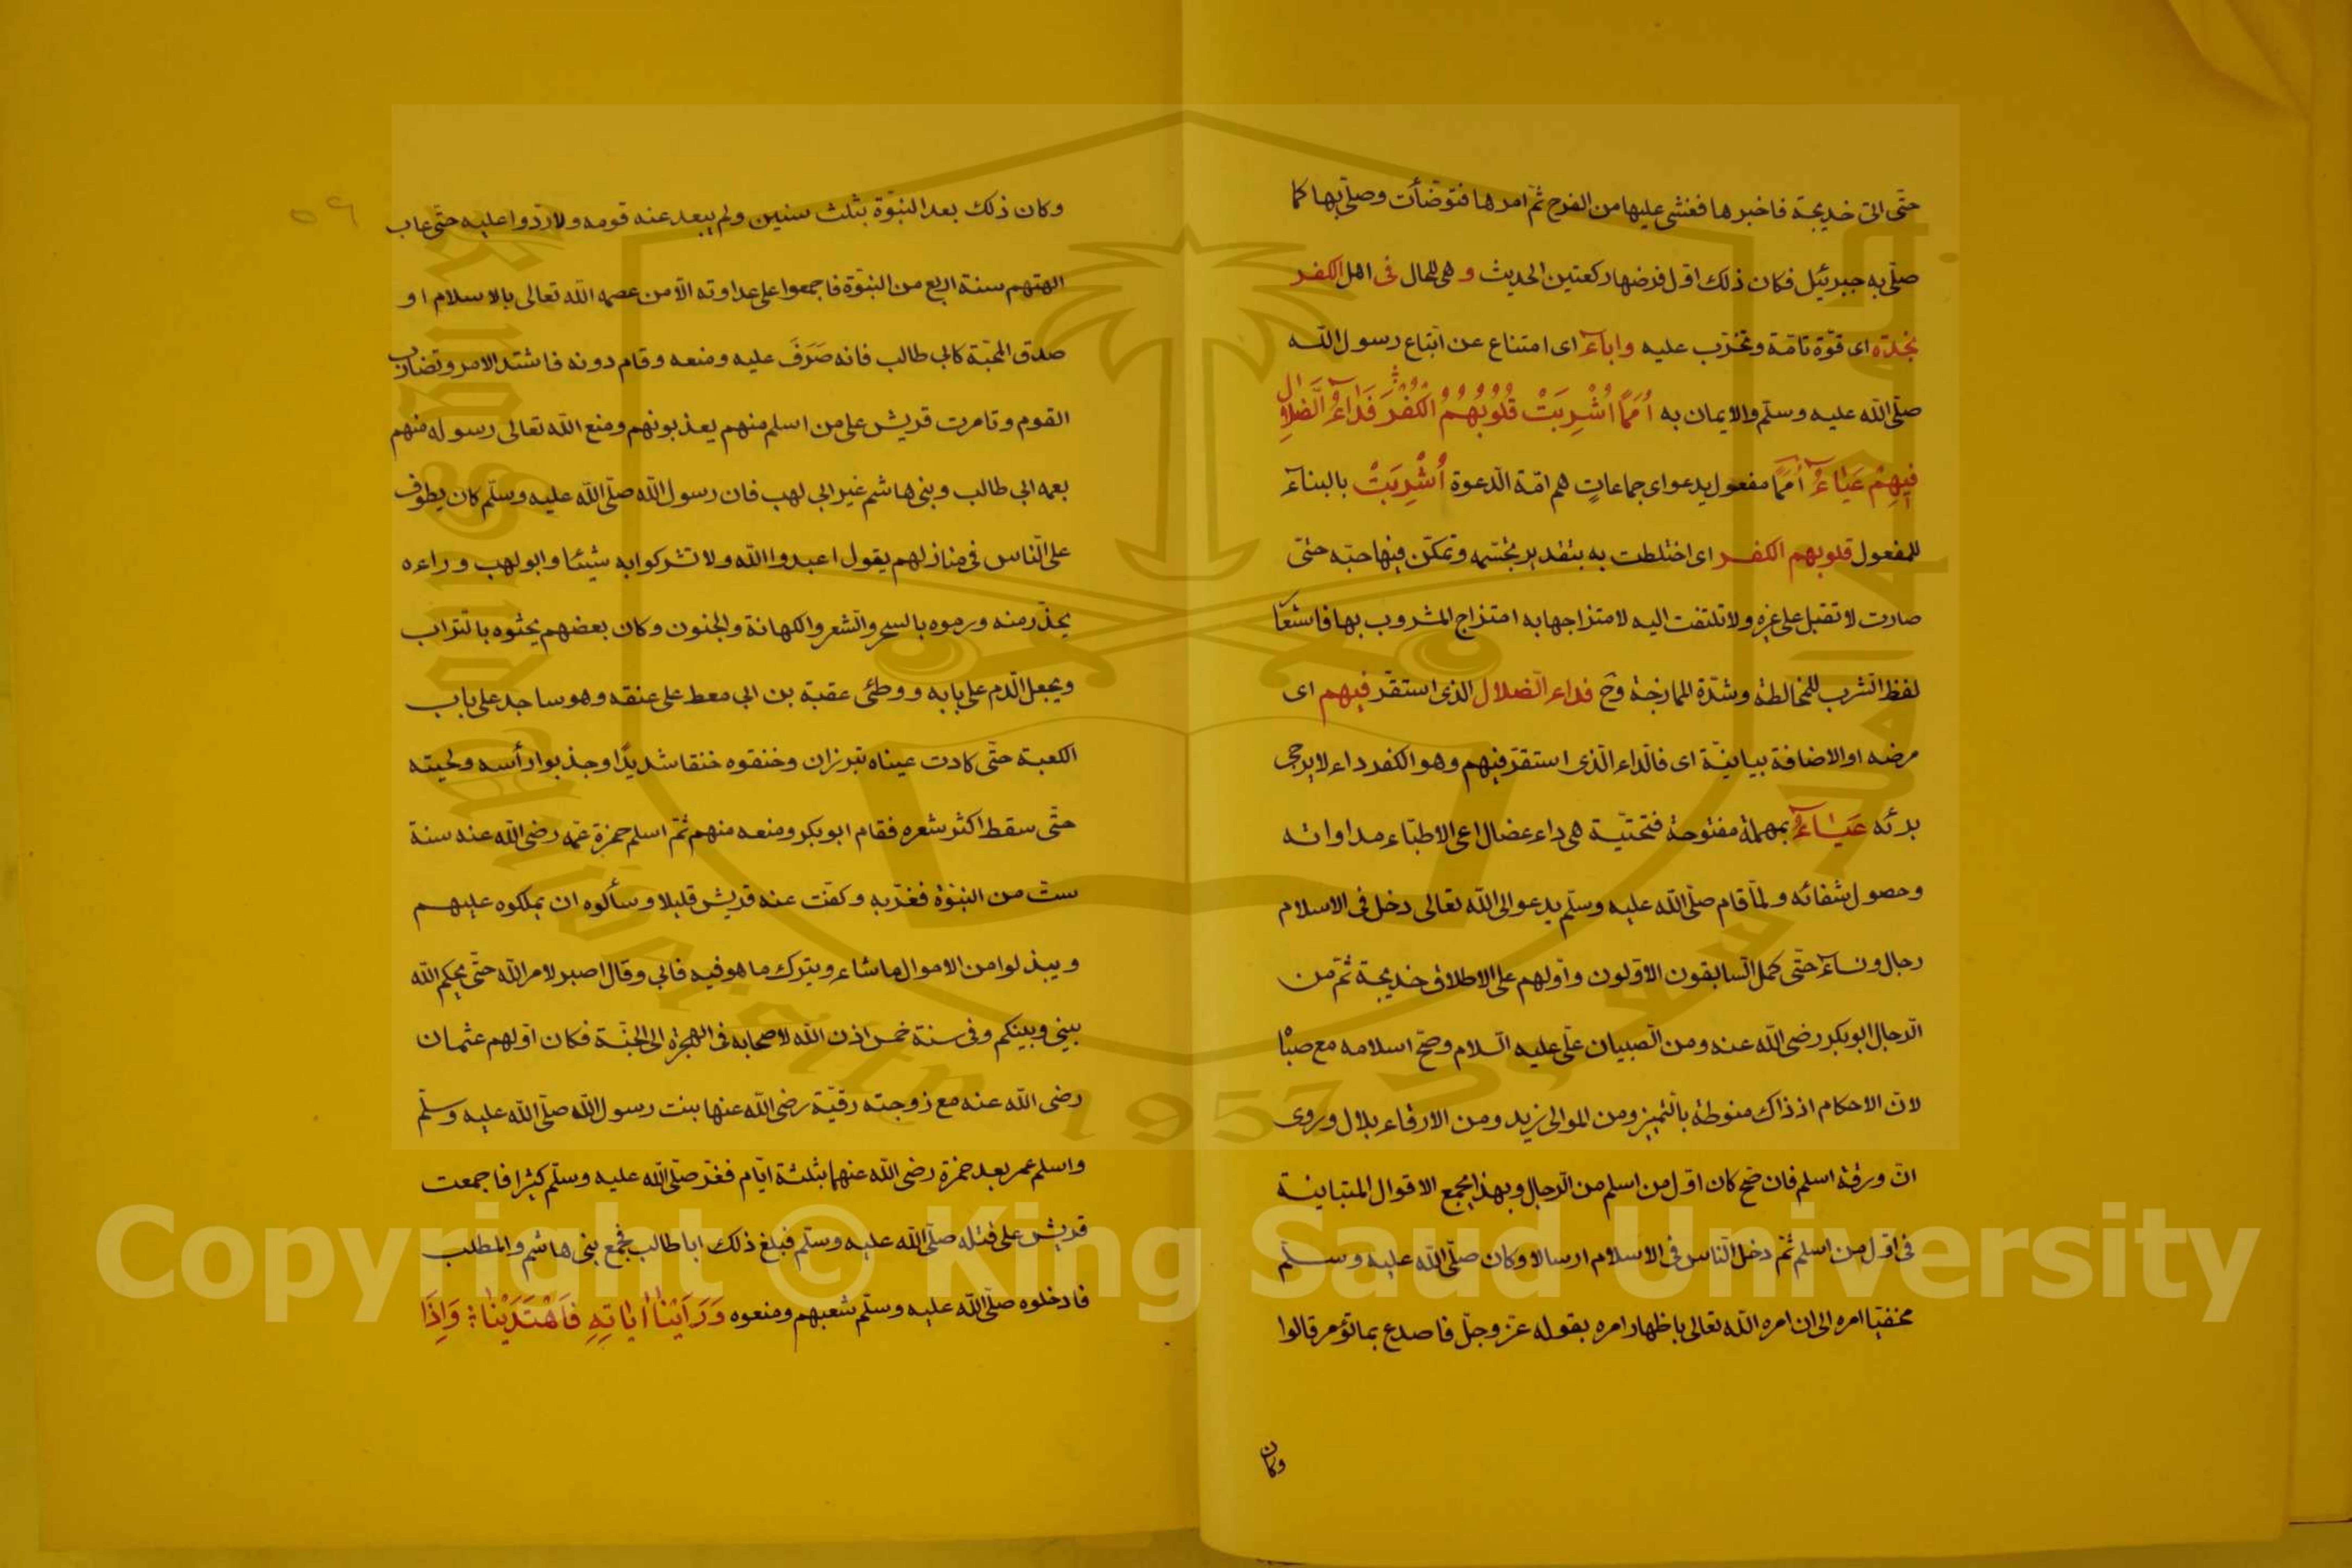 حتّى اتى خديجة فاخبرها فغشى عليها من الفرح ثمّ امرها فتوضّأت وصلّى بها كما
صلّى به جبرئيل فكان ذلك اوّل فرضها ركعتين الحديث و هى للحال فى اهل الكفر
نجدة اى قوّة تامّة وتحزّب عليه واباءٓ اى امتناع عن اتّباع رسول اللّه
صلّى اللّه عليه وسلّم والايمان به اُمَمًا اُشْرِبَتْ قُلُوبُهُمُ الْكُفْرَ فَدَاءُ الضَّلَالِ
فِيهِمْ عَيَاءُٓ اُممًا مفعول يدعو اى جماعاتٍ هم امّة الدّعوة اُشْرِبَتْ بالبناءٓ
للمفعول قلوبهم الكفر اى اختلطت به بتقدير تجسّمه وتمكّن فيها حبّه حتّى
صارت لا تقبل على غيره ولا تلتفت اليه لامتزاجها به امتزاج المشروب بها فاستعا
لفظ الشرب للمخالطة وشدّة الممازجة وح فداء الضلال الذى استقرّ فيهم اى
مرضه او الاضافة بيانيّة اى فالّداء الّذى استقرّ فيهم وهو الكفر داء لا يرجى
برئه عَيَاءُٓ بمهملة مفتوحة فتحتيّة هى داء عضال اعى الاطبّاء مداواته
وحصول شفائه ولمّا قام صلّى اللّه عليه وسلّم يدعو الى اللّه تعالى دخل فى الاسلام
رجال ونساءٓ حتّى كمل السّابقون الاوّلون واوّلهم على الاطلاق خديجة ثمّ من
الرّجال ابو بكر رضى اللّه عنه ومن الصّبيان علّى عليه السّلام وصحّ اسلامه مع صباه
لانّ الاحكام اذ ذاك منوطة بالتّميز ومن الموالى زيد ومن الارقاء بلال وروى
انّ ورقة اسلم فان صحّ كان اوّل من اسلم من الرّجال وبهذا يجمع الاقوال المتباينة
فى اوّل من اسلم ثمّ دخل النّاس فى الاسلام ارسالا وكان صلّى اللّه عليه وسلّم
مخفيا امره الى ان امره اللّه تعالى باظهار امره بقوله عزّ وجلّ فاصدع بما تؤمر قالوا
وكان
٥٩
وكان ذلك بعد النبوّة بثلث سنين ولم يبعد عنه قومه ولا ردّوا عليه حتّى عاب
الهتهم سنة اربع من النبوّة فاجمعوا على عداوته الّا من عصمه اللّه تعالى بالاسلام او
صدق المحبّة كابى طالب فانه صَرَفَ عليه ومنعه وقام دونه فاشتد الامر وتضارب
القوم وتامرت قريش على من اسلم منهم يعذبونهم ومنع اللّه تعالى رسوله منهم
بعمه ابى طالب وبنى هاشم غير ابى لهب فان رسول اللّه صلّى اللّه عليه وسلّم كان يطوف
على النّاس فى منازلهم يقول اعبدوا اللّه ولا تشركوا به شيئا وابو لهب وراءه
يحذّر منه ورموه بالسحر والشّعر والكهانة والجنون وكان بعضهم يحثوه بالتّراب
ويجعل الّدم على بابه ووطئ عقبة بن ابى معط على عنقه وهو ساجد على باب
الكعبة حتّى كادت عيناه تبرزان وخنقوه خنقا شديدًا وجذبوا رأسه ولحيته
حتّى سقط اكثر شعره فقام ابو بكر ومنعه منهم ثمّ اسلم حمزة عمّه رضى اللّه عنه سنة
ستّ من النبوّة فعزّ به وكفّت عنه قريش قليلا وسألوه ان يملكوه عليهم
ويبذلوا من الاموال ما شاء ويترك ما هو فيه فابى وقال اصبر لامر اللّه حتّى يحكم اللّه
بينى وبينكم وفى سنة خمس اذن اللّه لاصحابه فى الهجرة الى الحبّشة فكان اوّلهم عثمان
رضى اللّه عنه مع زوجته رقيّة رضى اللّه عنها بنت رسول اللّه صلّى اللّه عليه وسلّم
واسلم عمر بعد حمزة رضى اللّه عنهما بثلثة ايّام فعزّ صلّى اللّه عليه وسلّم كثيرا فاجمعت
قريش على قتله صلّى اللّه عليه وسلّم فبلغ ذلك ابا طالب فجمع بنى هاشم والمطلب
فادخلوه صلّى اللّه عليه وسلّم شعبهم ومنعوه وَرَاَيْنَا اٰيَاتِهِ فَاهْتَدَيْنَا وَاِذَا
Copyright © King Saud University
King Saud University
1957